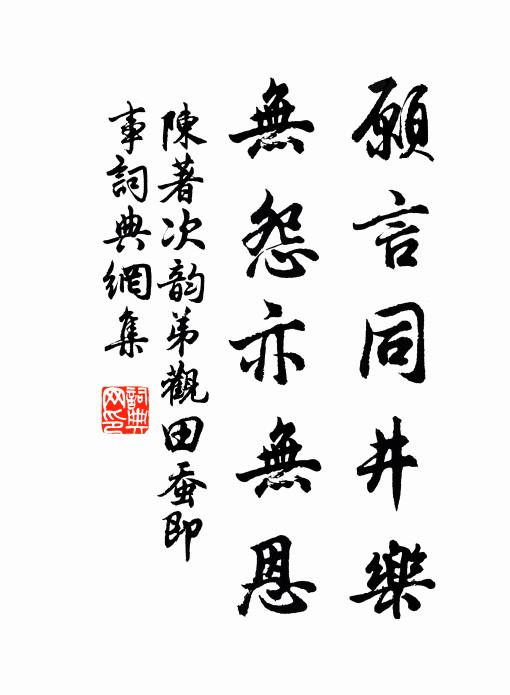 願言同井樂
無怨亦無恩
陳著次韵弟觀田蚕即
事詞典網集
詞典网印